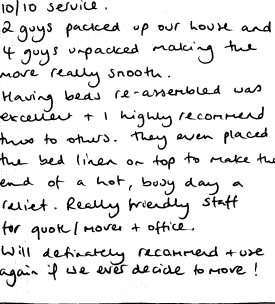 10/10 service.
2 guys packed up our house and
4 guys unpacked making the
move really smooth.
Having beds re-assembled was
excellent + I highly recommend
this to others. They even placed
the bed linen on top to make the
end of a hot, busy day a
relief. Really friendly staff
for quote/moves + office.
Will definately recommend + use
again if we ever decide to move!